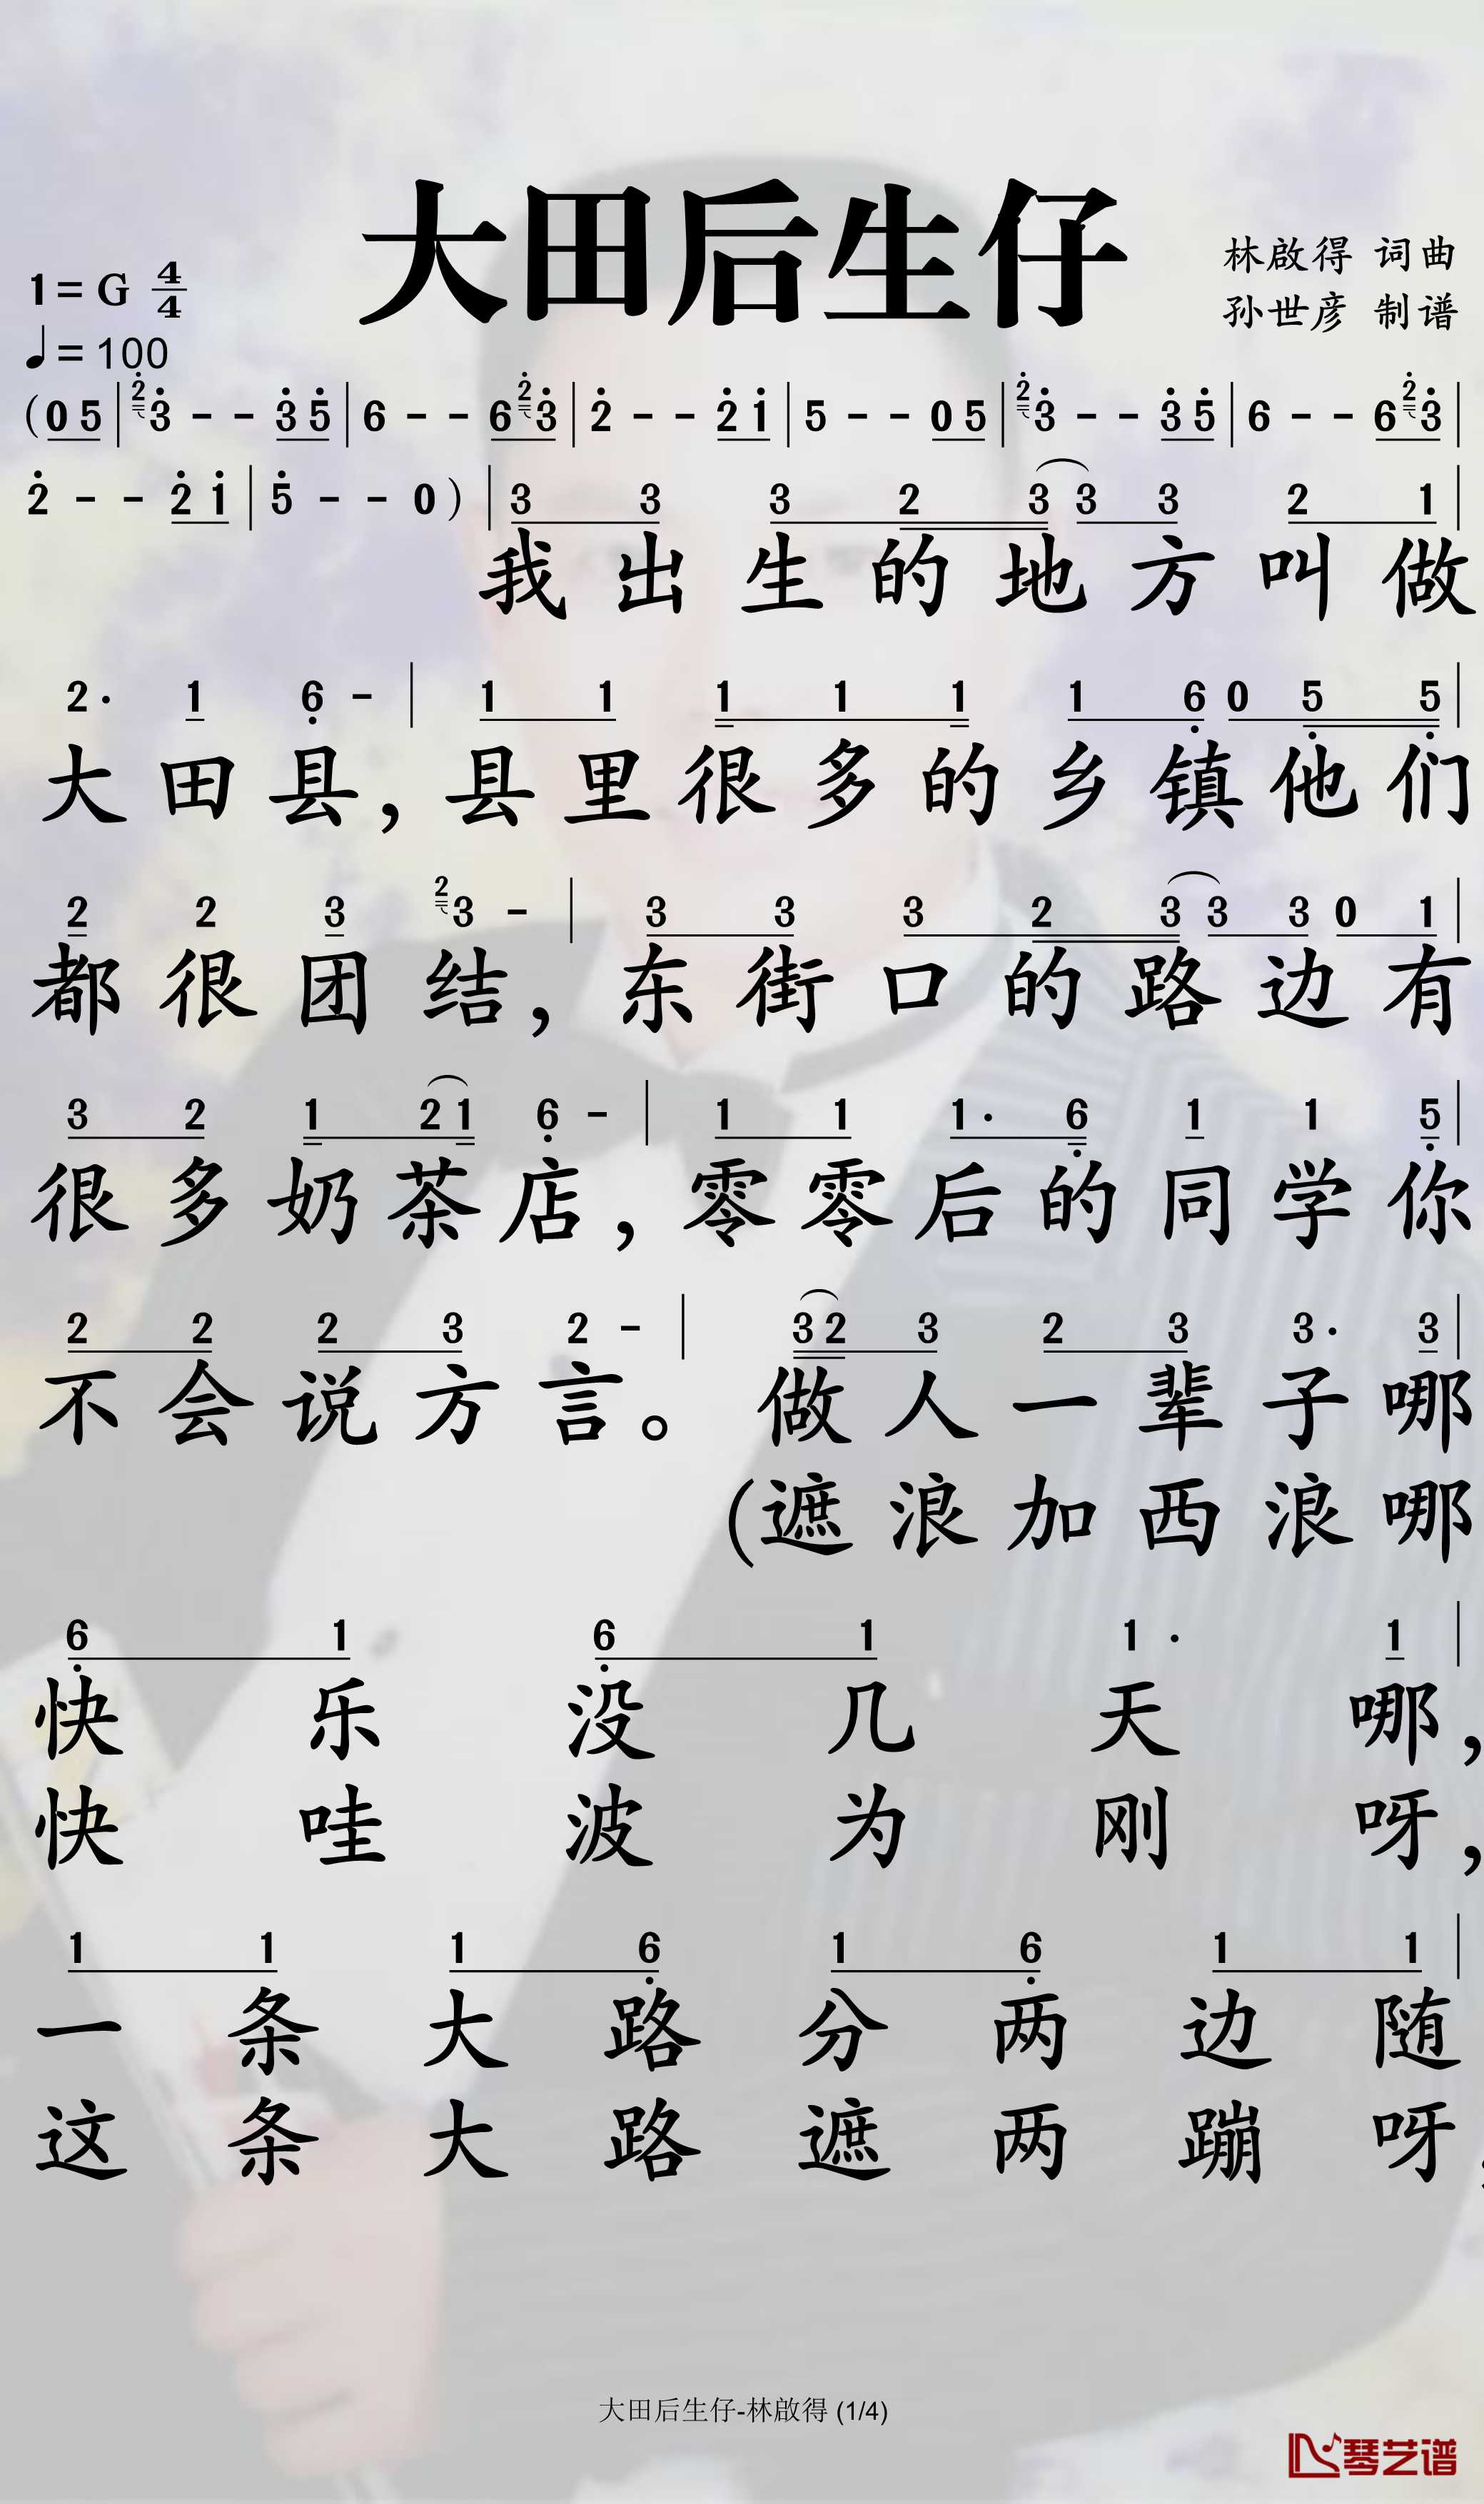 大田后生仔
林啟得 词曲
孙世彦 制谱
1=G 4/4
♩=100
(0 5 | 2 3 - - 3 5 | 6 - - 6 2 3 | 2 - - 2 1 | 5 - - 0 5 | 2 3 - - 3 5 | 6 - - 6 2 3 |
2 - - 2 1 | 5 - - 0 ) | 3 3 3 2 3 3 3 2 1 |
我出生的地方叫做
2· 1 6 - | 1 1 1 1 1 1 6 0 5 5 |
大田县,县里很多的乡镇他们
2 2 3 2 3 - | 3 3 3 2 3 3 3 0 1 |
都很团结,东街口的路边有
3 2 1 2 1 6 - | 1 1 1· 6 1 1 5 |
很多奶茶店,零零后的同学你
2 2 2 3 2 - | 3 2 3 2 3 3· 3 |
不会说方言。做人一辈子哪
(遮浪加西浪哪
6 1 6 1 1· 1 |
快乐没几天哪,
快哇波为刚呀,
1 1 1 6 1 6 1 1 |
一条大路分两边随
这条大路遮两蹦呀
大田后生仔-林啟得 (1/4)
琴艺谱